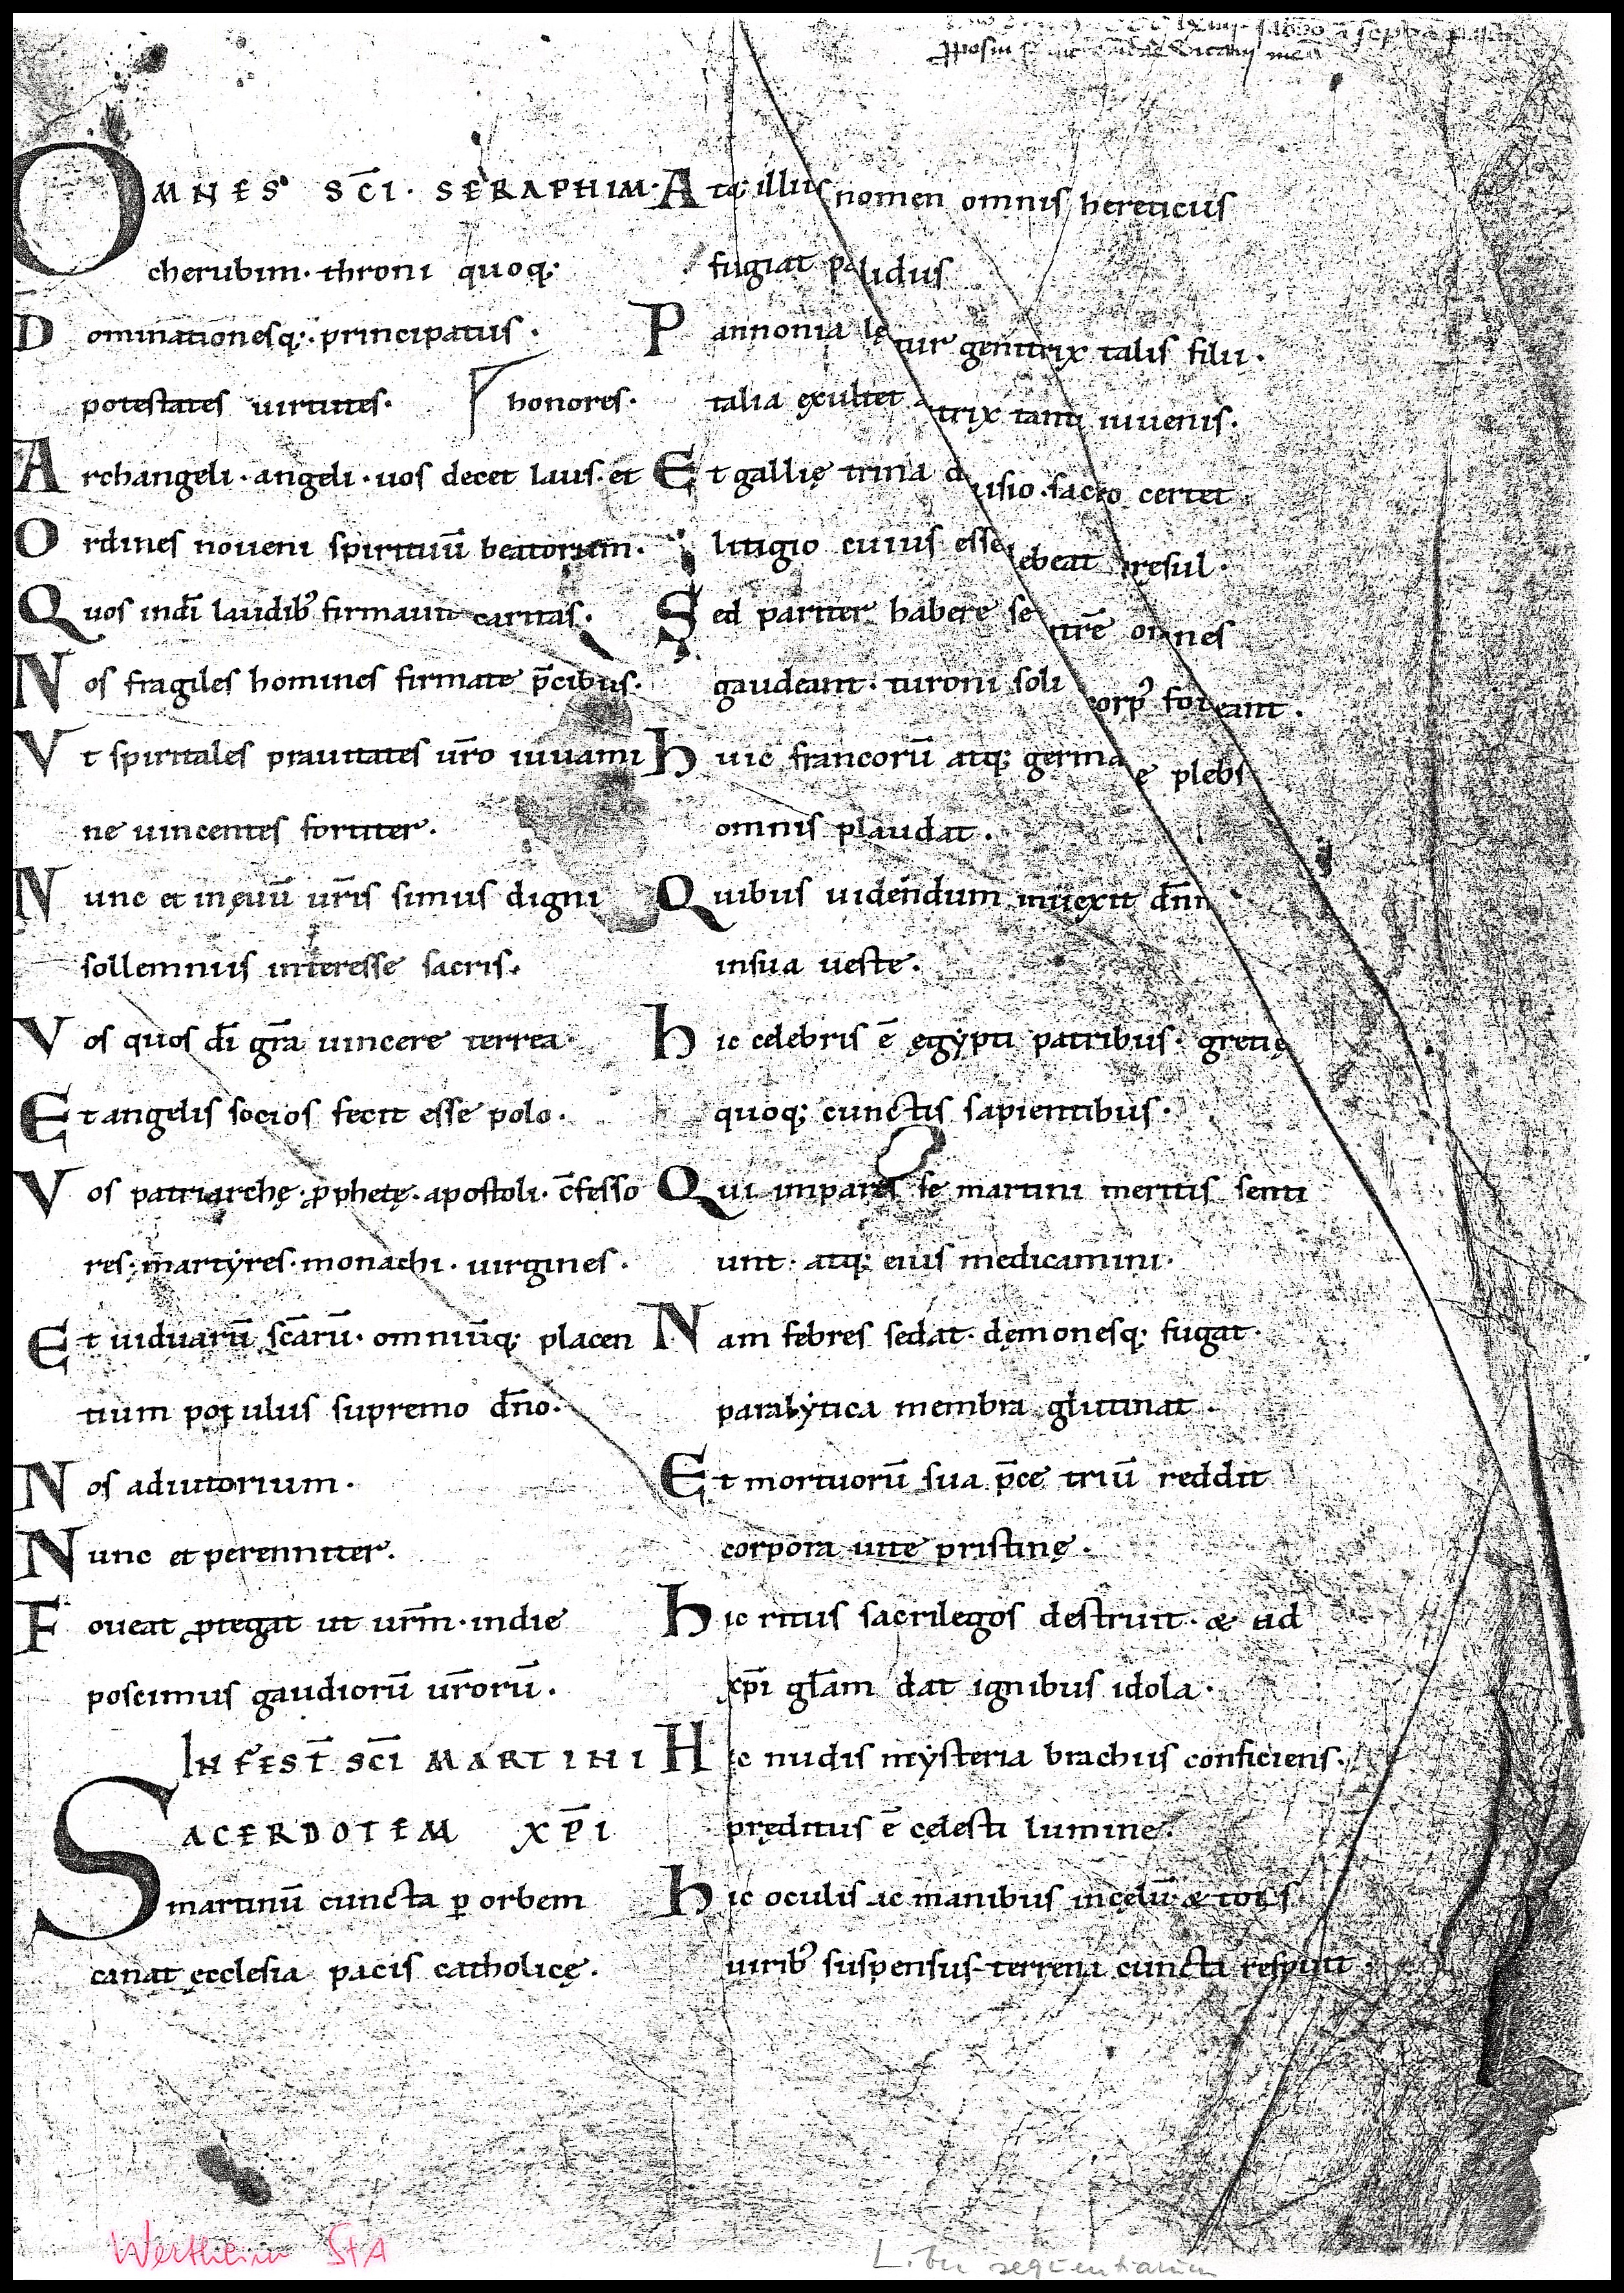 OMNES SC̄I · SERAPHIM ·
cherubim · throni quoq;
Dominationesq; · principatus ·
potestates uirtutes · honores ·
Archangeli · angeli · uos decet laus · et
Ordines noueni spirituū beatorum ·
Quos indī laudibꝰ firmauit caritas ·
Nos fragiles homines firmate p̄cibus ·
Vt spiritales prauitates ur̄o iuuami
ne uincentes fortiter ·
Nunc et in ęuū ur̄is simus digni
sollemniis interesse sacris ·
Vos quos dī gr̄a uincere terrea ·
Et angelis socios fecit esse polo ·
Vos patriarchę · ꝓphetę · apostoli · c̄fesso
res · martyres · monachi · uirgines ·
Et uiduarū sc̄arū · omniūq; placen
tium populus supremo dn̄o ·
Nos adiutorium ·
Nunc et perenniter ·
Foueat ꝓtegat ut ur̄m · indie
poscimus gaudiorū ur̄orū ·
IN FEST̄ SC̄I MARTINI
SACERDOTEM XP̄I
martinū cuncta ꝑ orbem
canat ęcclesia pacis catholicę ·
Atq; illius nomen omnis hereticus
fugiat palidus
Pannonia lętur genitrix talis filii ·
talia exultet trix tanti iuuenis ·
Et gallię trina diuisio · sacro certet
litigio cuius esse ebeat presul ·
Sed pariter habere se tr̄e omnes
gaudeant · turoni soli corpꝰ foueant ·
huic francorū atq; germa ę plebs
omnis plaudat ·
Quibus uidendum inuexit dn̄m
insua ueste ·
hic celebris ē ęgypti patribus · gretię
quoq; cunctis sapientibus ·
Qui impares se martini meritis senti
unt · atq; eius medicamini ·
Nam febres sedat · dęmonesq; fugat ·
paralytica membra glutinat ·
Et mortuorū sua p̄ce triū reddit
corpora uite pristinę ·
hic ritus sacrilegos destruit · & ad
xp̄i gl̄am dat ignibus idola ·
Hic nudis mysteria brachiis conficiens ·
pręditus ē cęlesti lumine ·
hic oculis ac manibus in cęlū & totis
uiribꝰ suspensus terrena cuncta respuit ·
Wertheim StA
Liber sequentiarum